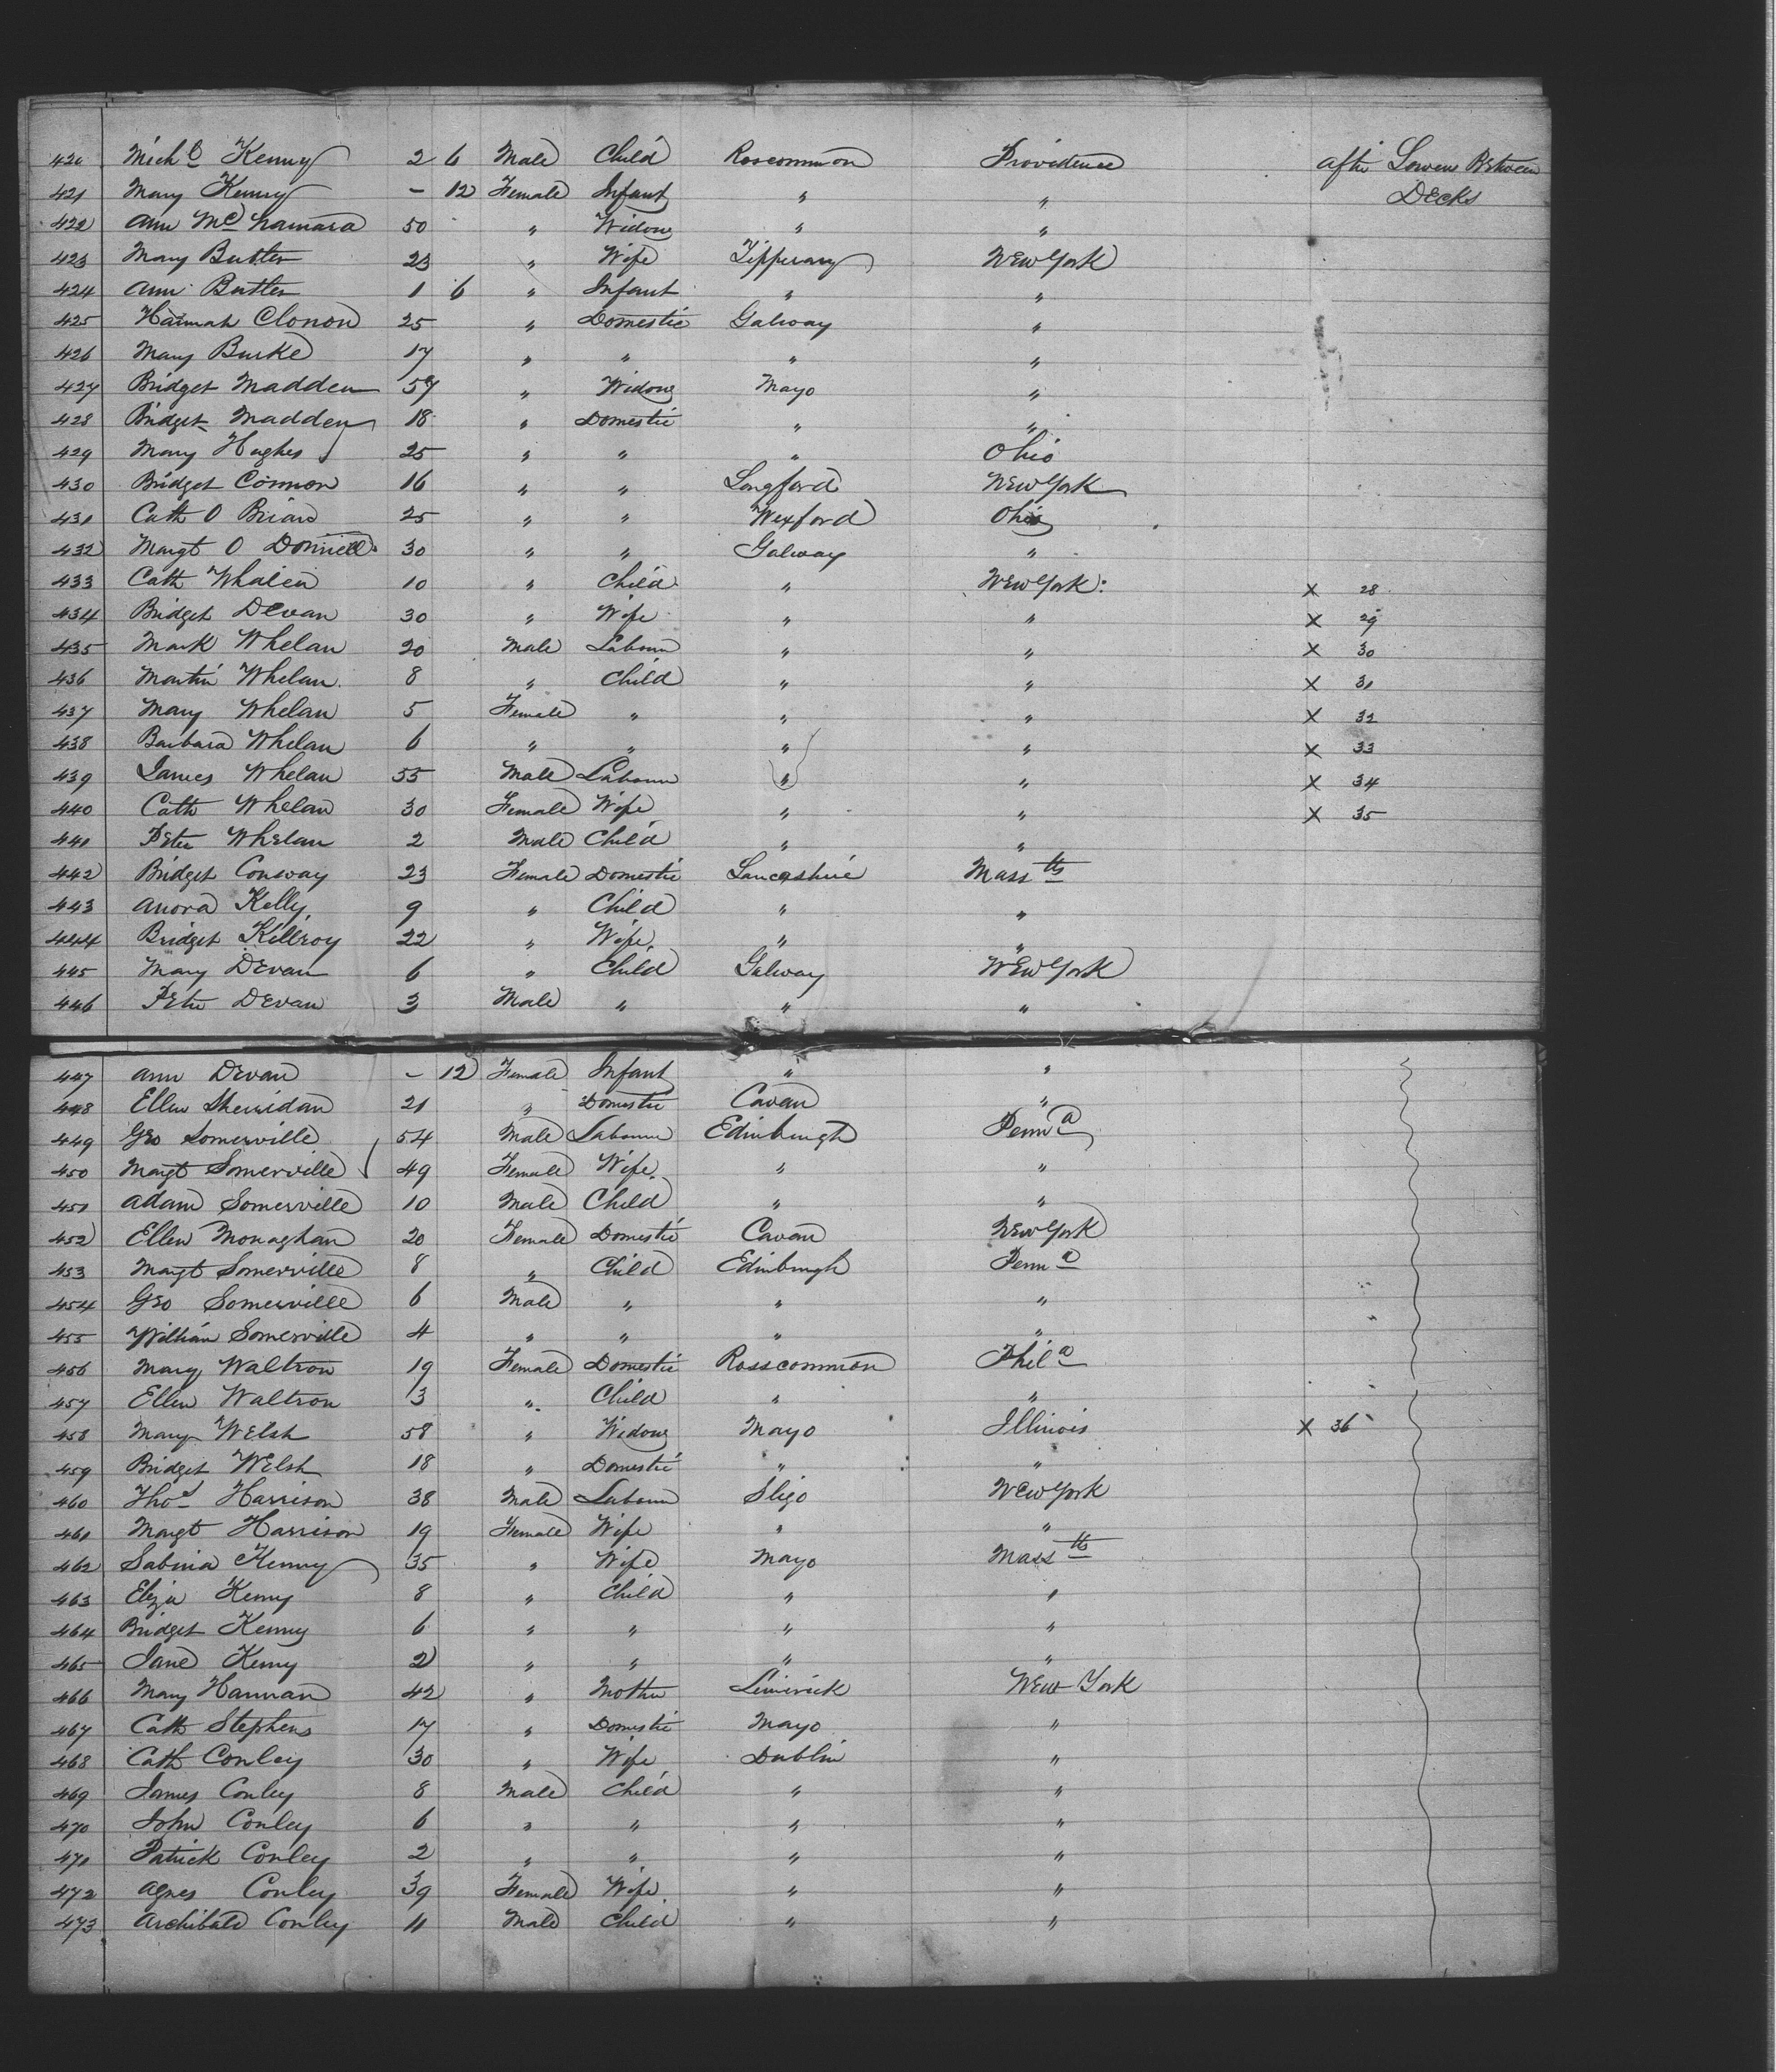 420 Mich.l Kenny 2 6 Male Child Roscommon Providence After Lower Between
421 Mary Kenny - 12 Female Infant " " Decks
422 Ann McNamara 50 " Widow " "
423 Mary Butler 23 " Wife Tipperary New York
424 Ann Butler 1 6 " Infant " "
425 Hannah Clonon 25 " Domestic Galway "
426 Mary Burke 17 " " " "
427 Bridget Madden 57 " Widow Mayo "
428 Bridget Madden 18 " Domestic " "
429 Mary Hughes 25 " " " Ohio
430 Bridget Connon 16 " " Longford New York
431 Cath O Brian 25 " " Wexford Ohio
432 Margt O Donnell 30 " " Galway "
433 Cath Whalen 10 " Child " New York X 28
434 Bridget Devan 30 " Wife " " X 29
435 Mark Whelan 20 Male Labour " " X 30
436 Martin Whelan 8 " Child " " X 31
437 Mary Whelan 5 Female " " " X 32
438 Barbara Whelan 6 " " " " X 33
439 James Whelan 55 Male Labour " " X 34
440 Cath Whelan 30 Female Wife " " X 35
441 Peter Whelan 2 Male Child " "
442 Bridget Conway 23 Female Domestic Lancashire Massts
443 Anora Kelly 9 " Child " "
444 Bridget Killroy 22 " Wife " "
445 Mary Devan 6 " Child Galway New York
446 Peter Devan 3 Male " " "
447 Ann Devan - 12 Female Infant " "
448 Ellen Sherridan 21 " Domestic Cavan "
449 Geo Somerville 54 Male Labour Edinburgh Penna
450 Margt Somerville 49 Female Wife " "
451 Adam Somerville 10 Male Child " "
452 Ellen Monaghan 20 Female Domestic Cavan New York
453 Margt Somerville 8 " Child Edinburgh Penna
454 Geo Somerville 6 Male " " "
455 William Somerville 4 " " " "
456 Mary Waltron 19 Female Domestic Rosscommon Phila
457 Ellen Waltron 3 " Child " "
458 Mary Welsh 58 " Widow Mayo Illinois X 36
459 Bridget Welsh 18 " Domestic " "
460 Thos Harrison 38 Male Labour Sligo New York
461 Margt Harrison 19 Female Wife " "
462 Sabina Kenny 35 " Wife Mayo Massts
463 Eliza Kenny 8 " Child " "
464 Bridget Kenny 6 " " " "
465 Jane Kenny 2 " " " "
466 Mary Hannan 42 " Mother Limerick New York
467 Cath Stephens 17 " Domestic Mayo "
468 Cath Conley 30 " Wife Dublin "
469 James Conley 8 Male Child " "
470 John Conley 6 " " " "
471 Patrick Conley 2 " " " "
472 Agnes Conley 39 Female Wife " "
473 Archibald Conley 11 Male Child " "